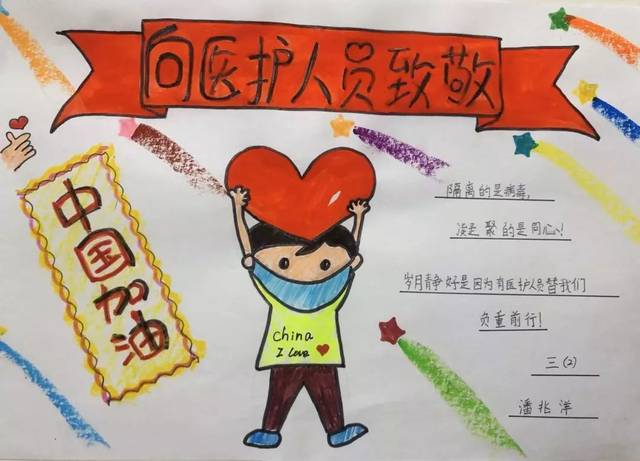 向医护人员致敬
中国加油
China
I Love
隔离的是病毒,
凝聚的是同心!
岁月静好是因为有医护人员替我们
负重前行!
三(2)
潘兆洋